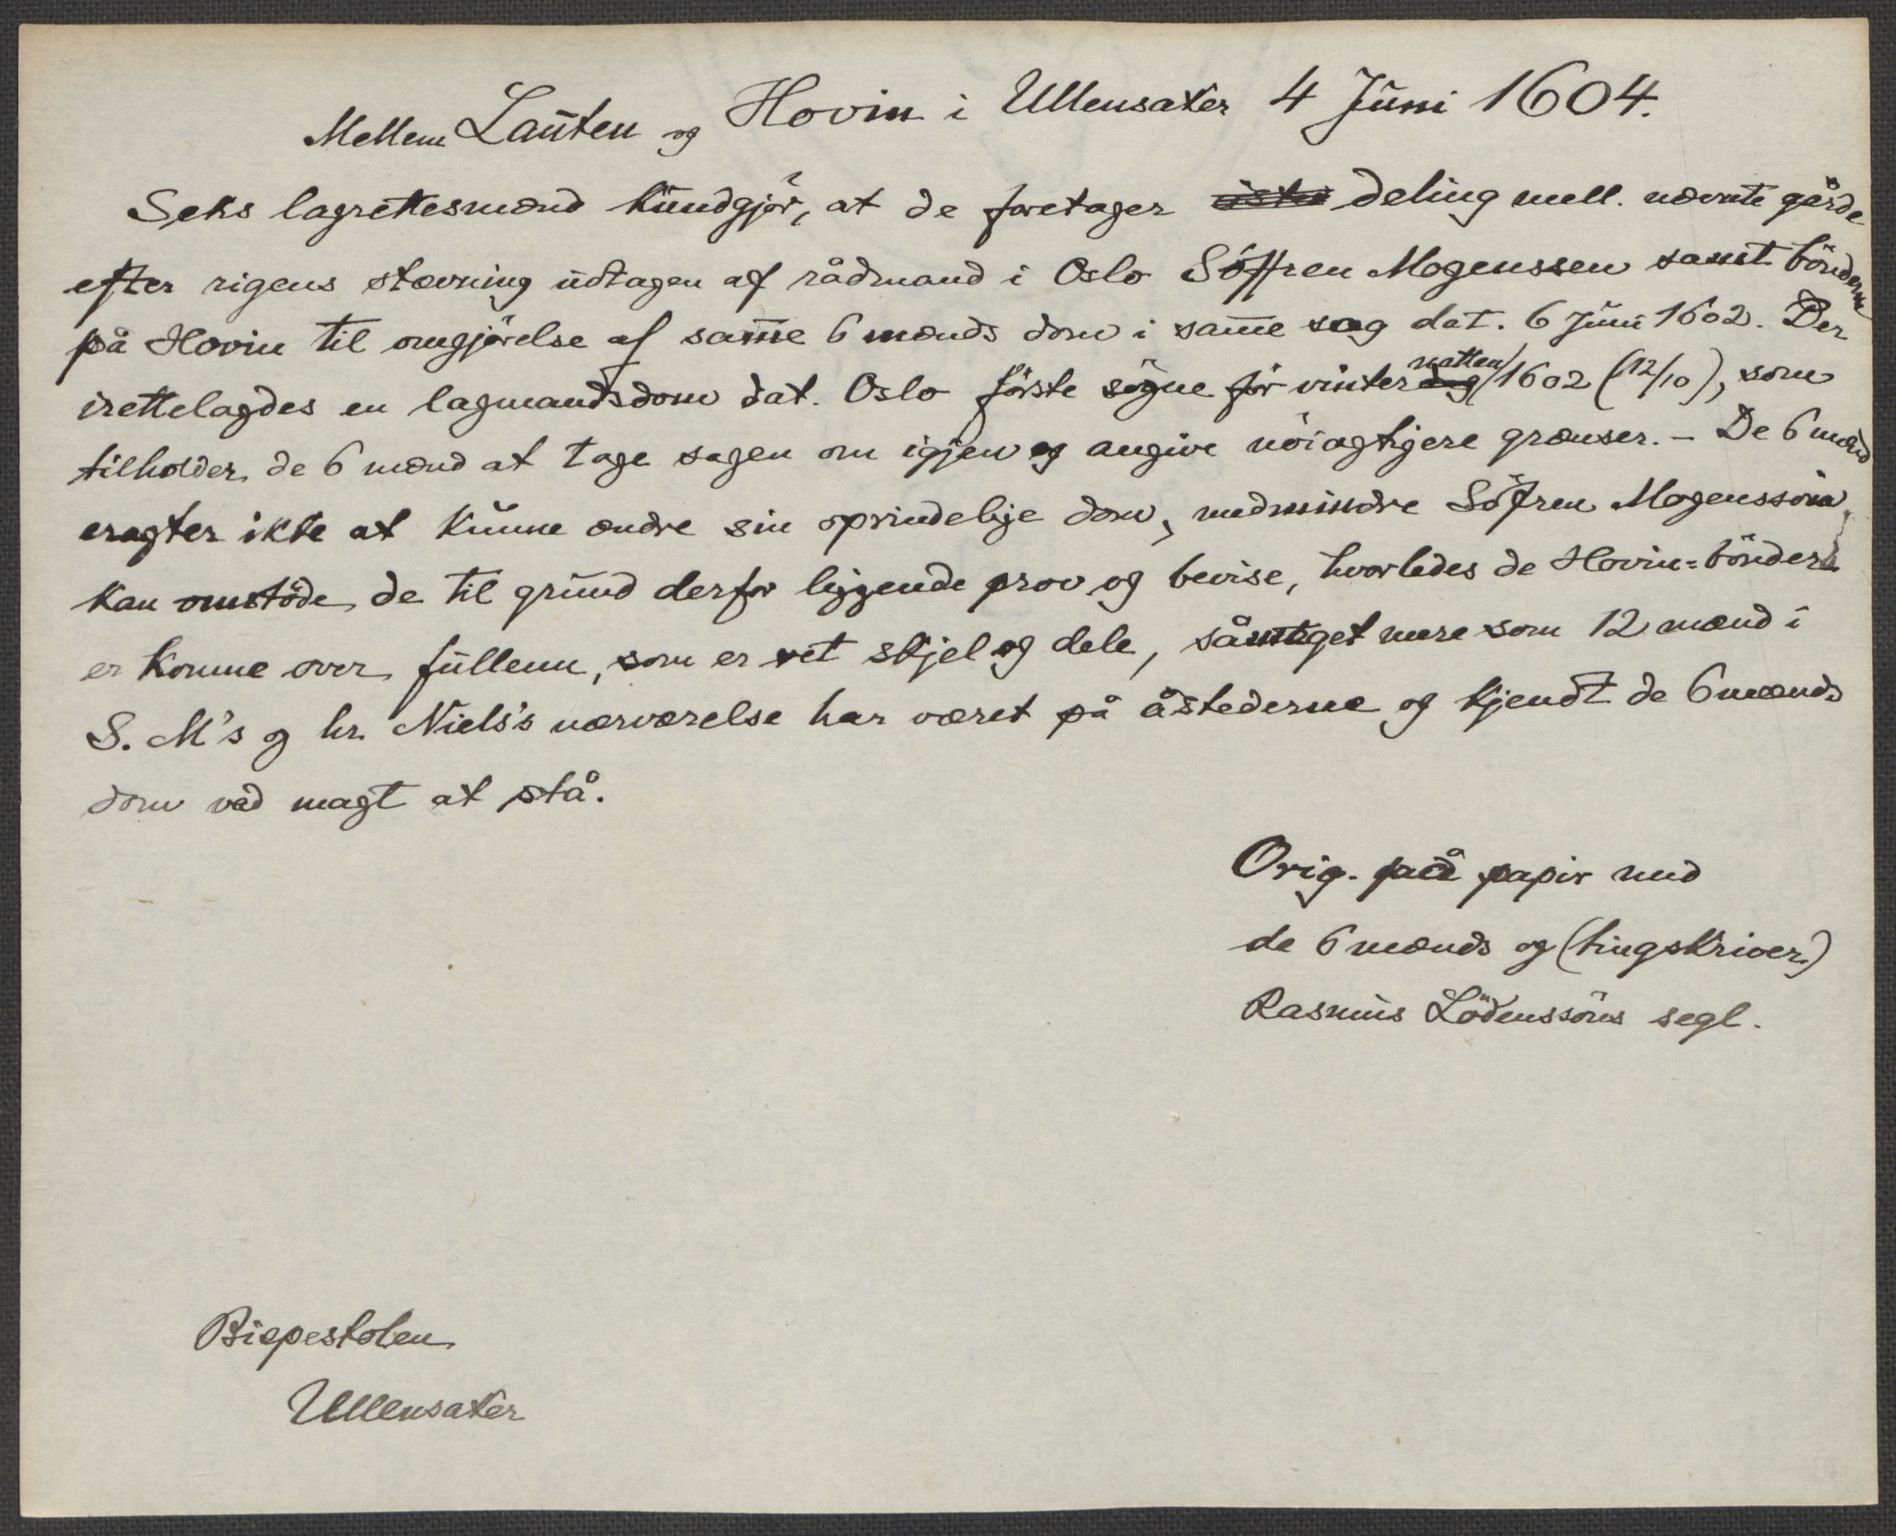 Mellem Lauten og Hovin i Ullensaker 4 Juni 1604.
Seks lagrettesmænd kundgjör, at de foretager deling mell. nævnte gårde
efter rigens stævning udtagen af rådmand i Oslo Söffren Mogenssen samt bönderne
på Hovin til omgjörelse af samme 6 mænds dom i samme sag dat. 6 Juni 1602. Der
irettelagdes en lagmandsdom dat. Oslo förste sögne för vinternatten 1602 (12/10), som
tilholder de 6 mænd at tage sagen om igjen og angive nöiagtigere grænser. - De 6 mænd
eragter ikke at kunne ændre sin oprindelige dom, medmindre Söfren Mogenssön
kan omstöde de til grund derfor liggende prov og bevise, hvorledes de Hovin=bönder
er komne over fullenn, som er ret skjel og dele, såmeget mere som 12 mænd i
S. M's og hr. Niels's nærværelse har været på åstederne og kjendt de 6 mænds
dom ved magt at stå.
Orig. på papir med
de 6 mænds og (tingskriver)
Rasmus Lödenssöns segl.
Bispestolen
Ullensaker